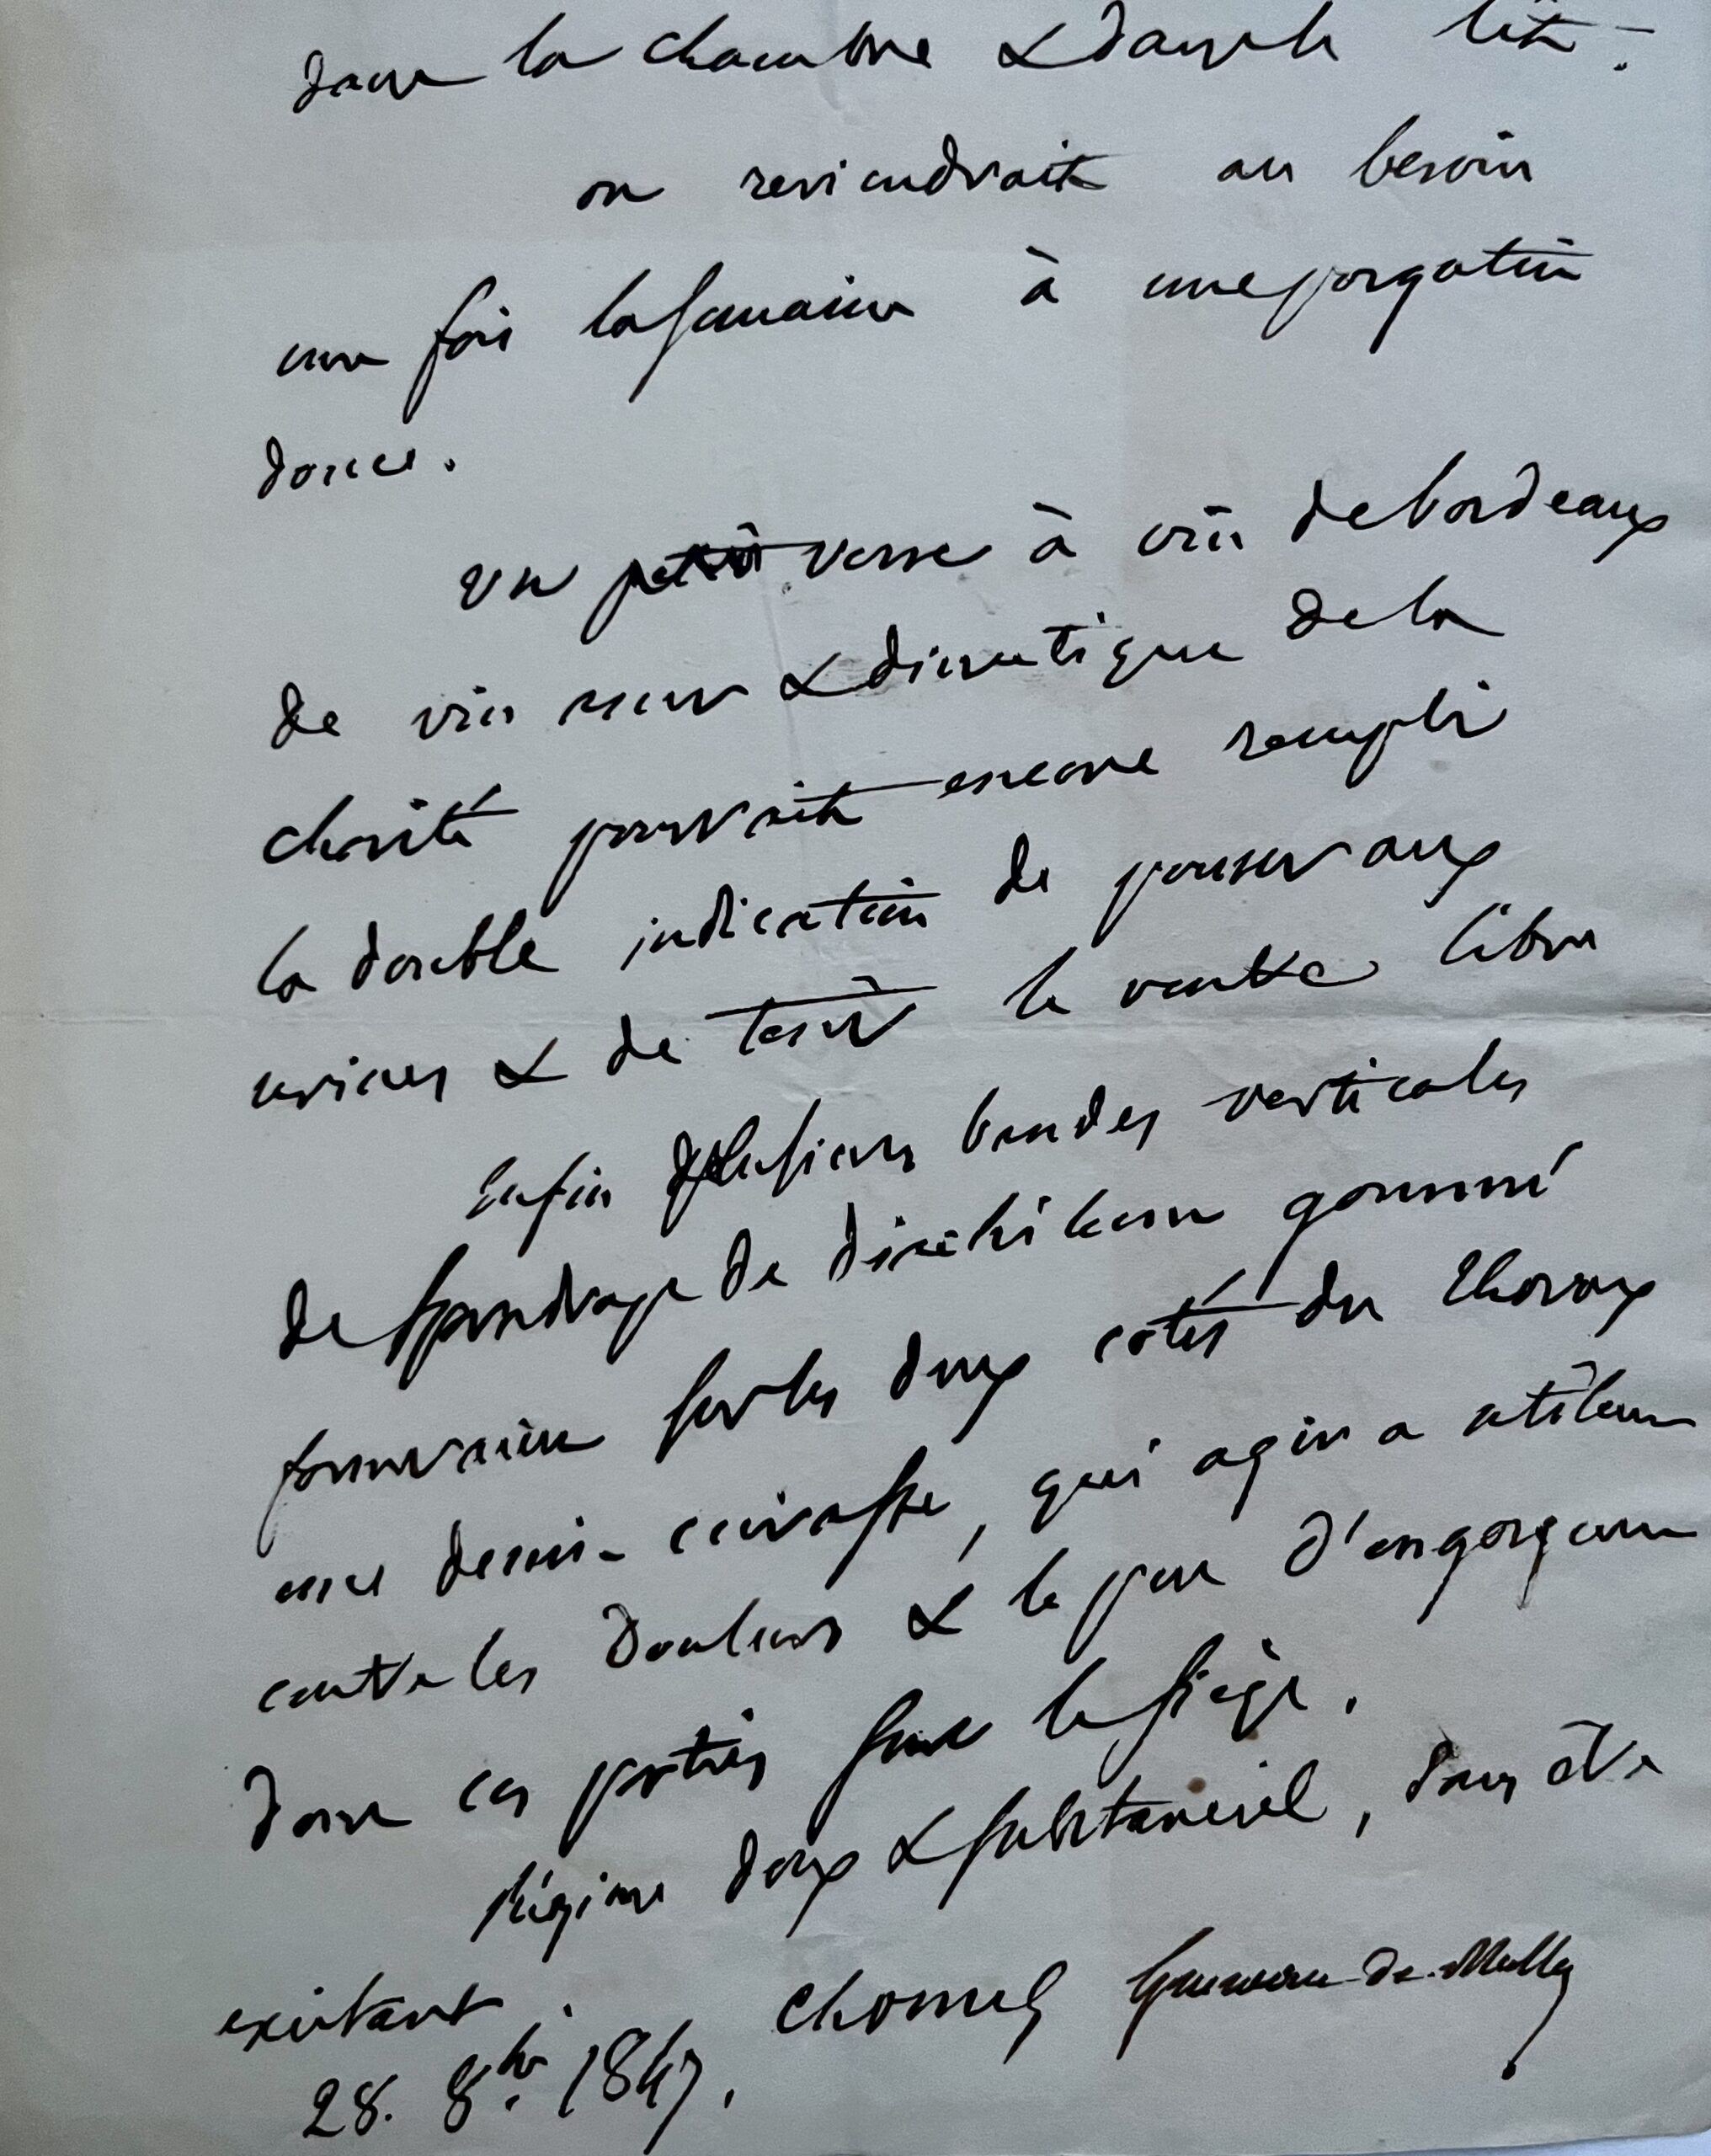 dans la chambre & dans le lit :
on reviendrait au besoin
une fois la semaine à une purgation
douce.
un petit verre à vin de bordeaux
de vin amer & diurétique de la
charité pourrait encore remplir
la double indication de pousser aux
urines & de tenir le ventre libre
Enfin plusieurs bandes verticales
de sparadrap de diachilum gommé
formeraient sur les deux cotés du thorax
une demi-cuirasse, qui agira utilement
contre les douleurs & le peu d'engorgement
dont ces parties sont le siège.
Régime doux & substantiel, sans être
excitant.
28. 8bre 1847. Chomel Gueneau de Mussy